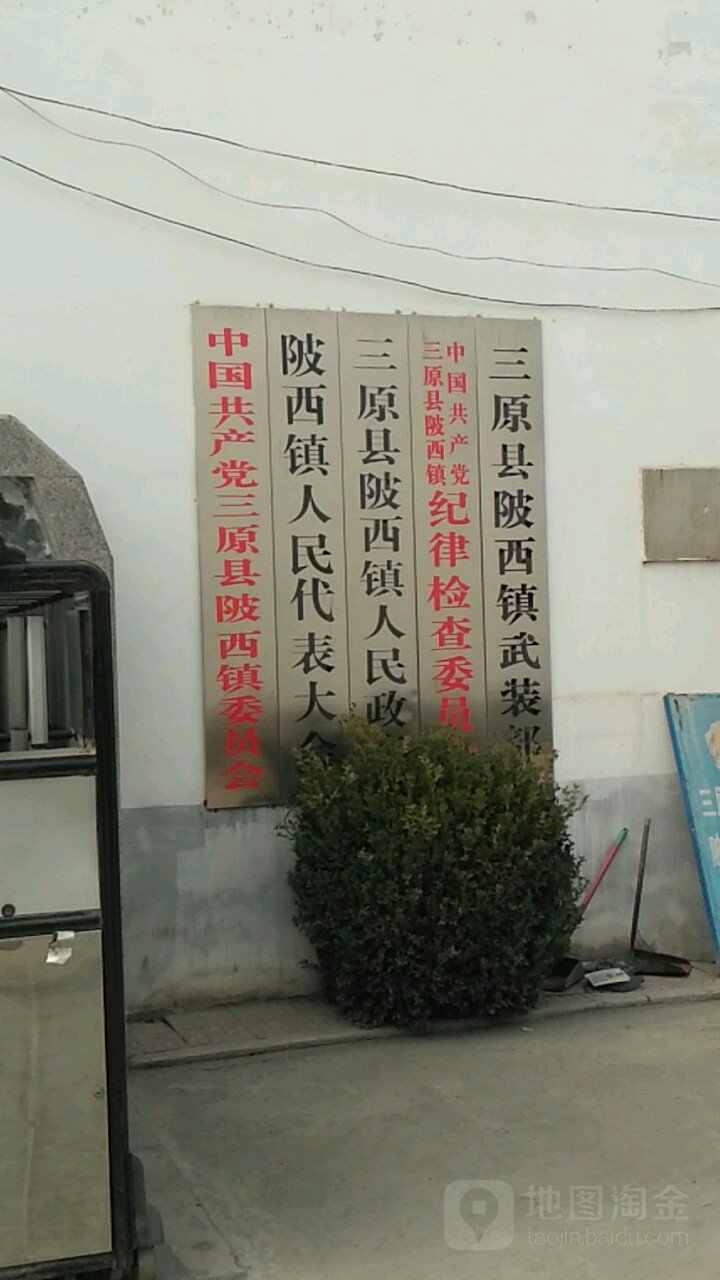 中国共产党三原县陂西镇委员会
陂西镇人民代表大会
三原县陂西镇人民政
中国共产党
三原县陂西镇
纪律检查委员
三原县陂西镇武装部
三
地图淘金
taojin.baidu.com